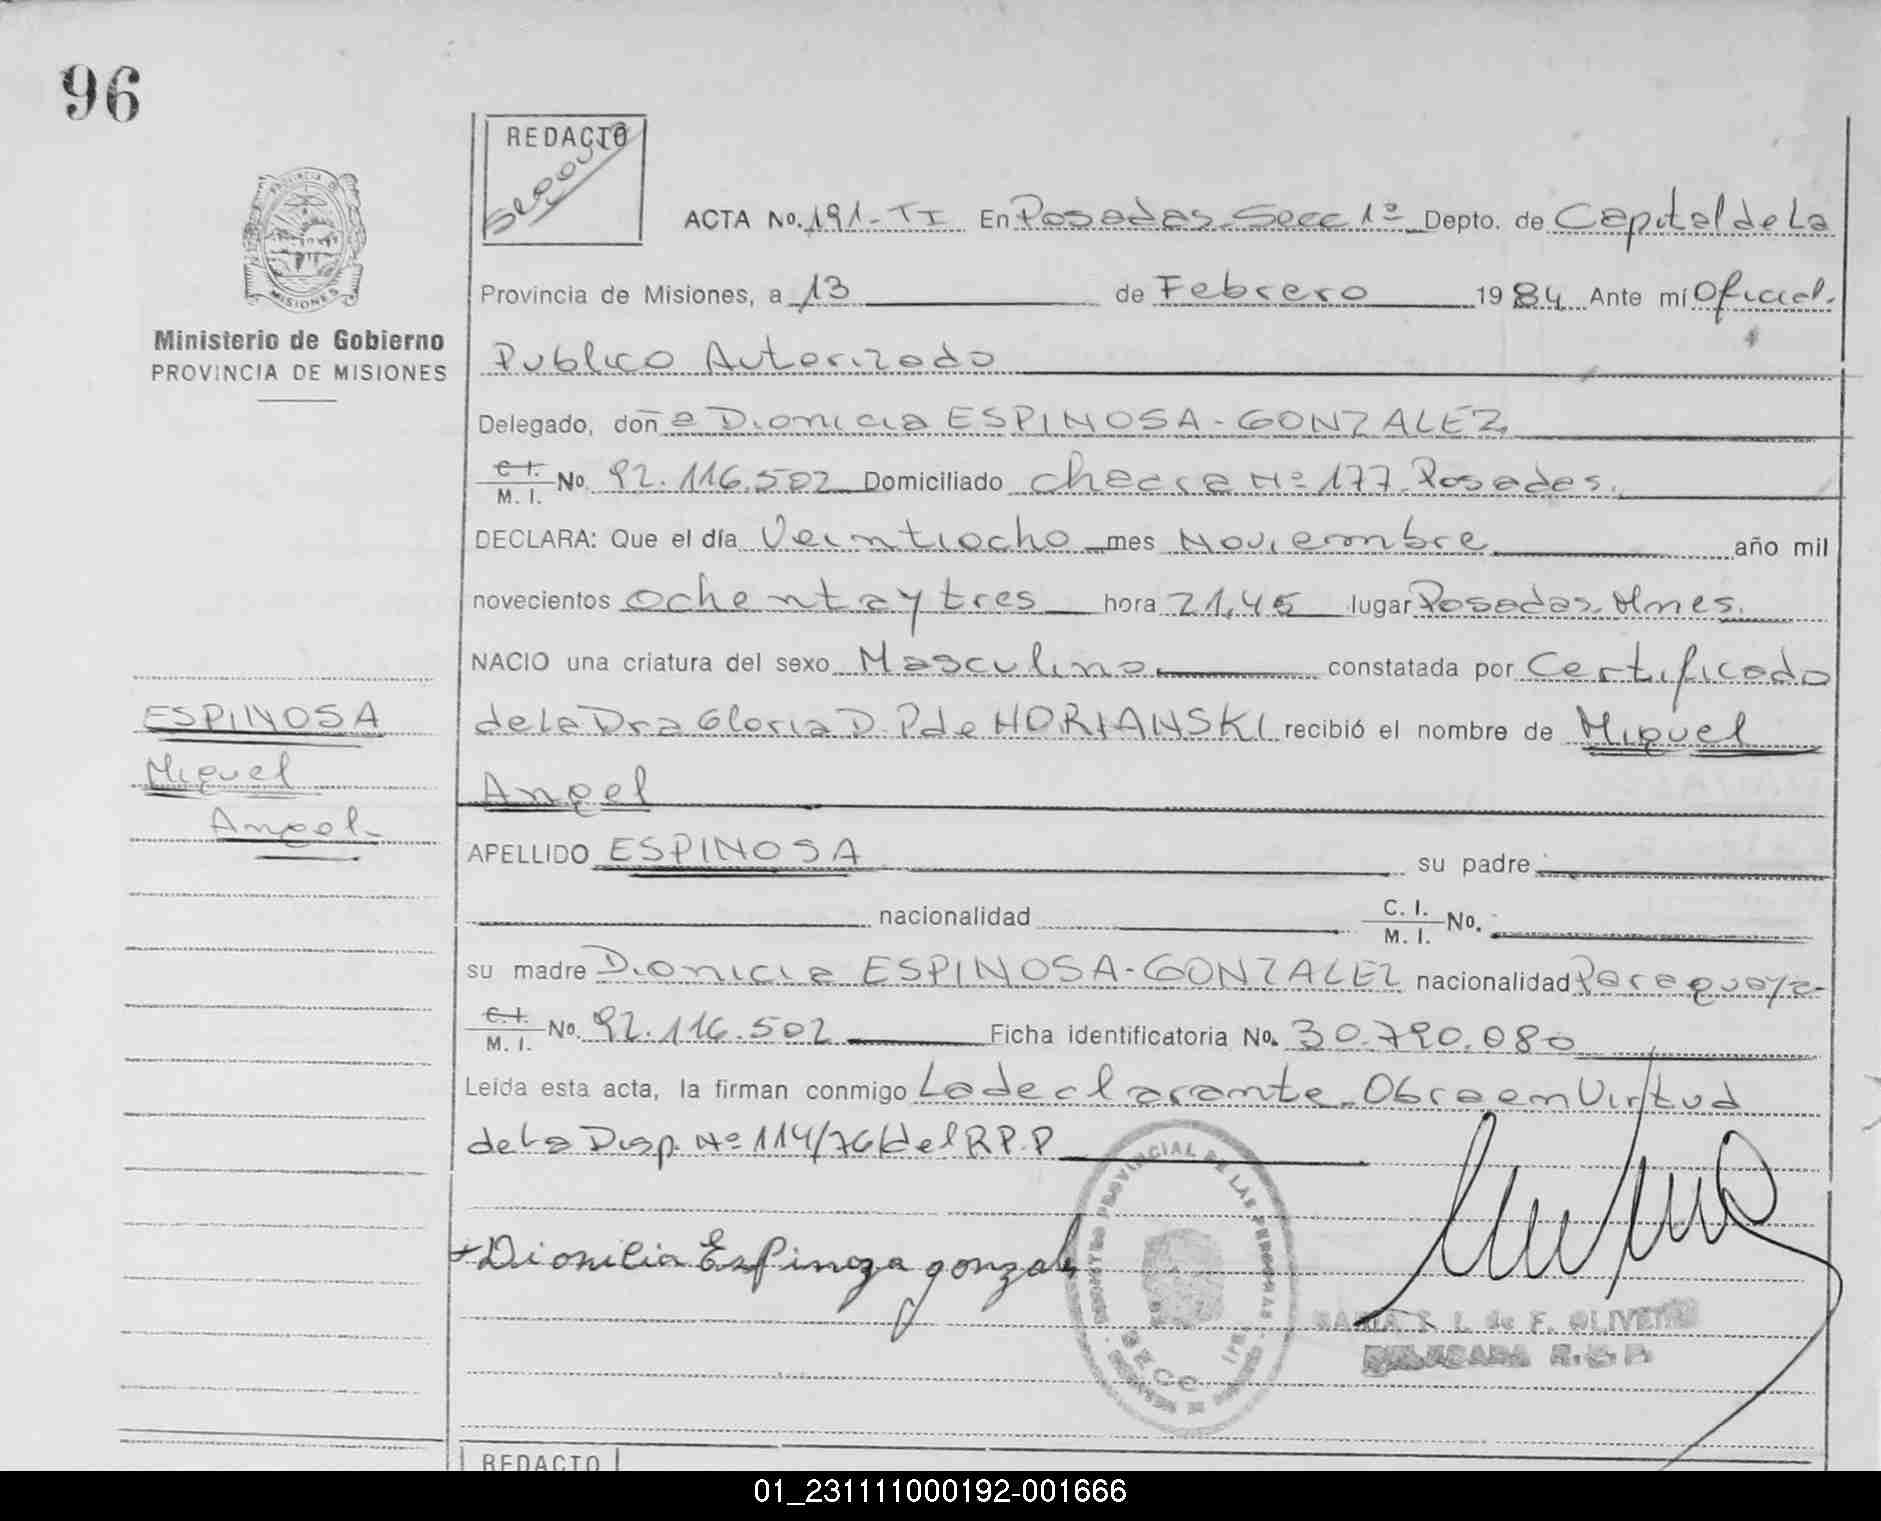 96
REDACTO
PROVINCIA DE
MISIONES
Ministerio de Gobierno
PROVINCIA DE MISIONES
ACTA No. 191-TI En Posadas-Secc 1º Depto. de Capital de La
Provincia de Misiones, a 13 de Febrero 1984 Ante mí Oficial.
Publico Autorizado
Delegado, doña Dionicia ESPINOSA-GONZALEZ
C.I.
M. I. No. 92.116.502 Domiciliado Chacra Nº 177-Posadas.
DECLARA: Que el día Veintiocho mes Noviembre año mil
novecientos ochenta y tres hora 21,45 lugar Posadas. Mnes.
NACIO una criatura del sexo Masculino constatada por Certificado
ESPINOSA
Miguel
Angel-
de La Dra Gloria D. P de HORIANSKI recibió el nombre de Miguel
Angel
APELLIDO ESPINOSA su padre
nacionalidad C. I.
M. I. No.
su madre Dionicia ESPINOSA-GONZALEZ nacionalidad Paraguaya-
C.I.
M. I. No. 92.116.502 Ficha identificatoria No. 30.790.080
Leída esta acta, la firman conmigo La declarante-Obra en Virtud
de La Disp. Nº 114/76 del R.P.P
REGISTRO PROVINCIAL DE LAS PERSONAS
SECC. 1ra
Dionilia Espinoza gonzalez
L. de F. OLIVEIRA
DELEGADA R.P.P.
REDACTO
01_231111000192-001666